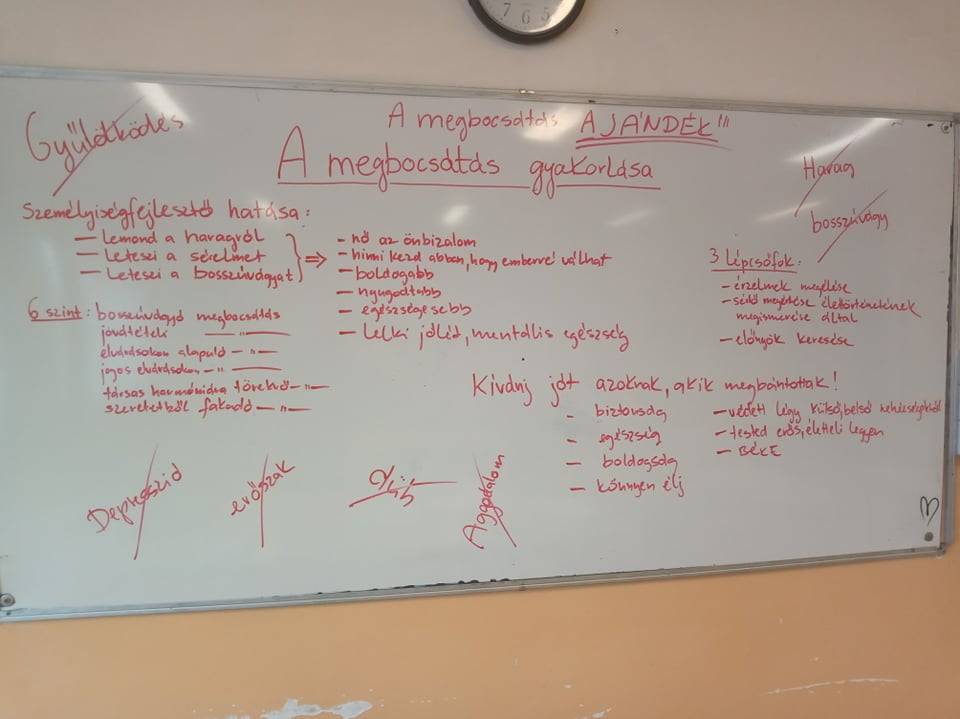 7 6 5
Gyűlölködés
A megbocsátás AJÁNDÉK"!
A megbocsátás gyakorlása
Harag
bosszúvágy
Személyiségfejlesztő hatása:
— Lemond a haragról
— Leteszi a sérelmet
— Leteszi a bosszúvágyat
⇒
- nő az önbizalom
- hinni kezd abban, hogy emberré válhat
- boldogabb
- nyugodtabb
- egészségesebb
- Lelki jóléd, mentális egészség
3 Lépcsőfok:
- érzelmek megélése
- sértő megértése élettörténetének
megismerése által
- előnyök keresése
6 szint: bosszúvágyó megbocsátás
jóvátételi —"—
elvárásokon alapuló —"—
jogos elvárásokon —"—
társas harmóniára törekvő —"—
szeretetből fakadó —"—
Kívánj jót azoknak, akik megbántottak!
- biztonság
- egészség
- boldogság
- könnyen élj
- védett légy külső, belső nehézségektől
- tested erős, életteli legyen
- BÉKE
Depresszió
erőszak
Aggodalom